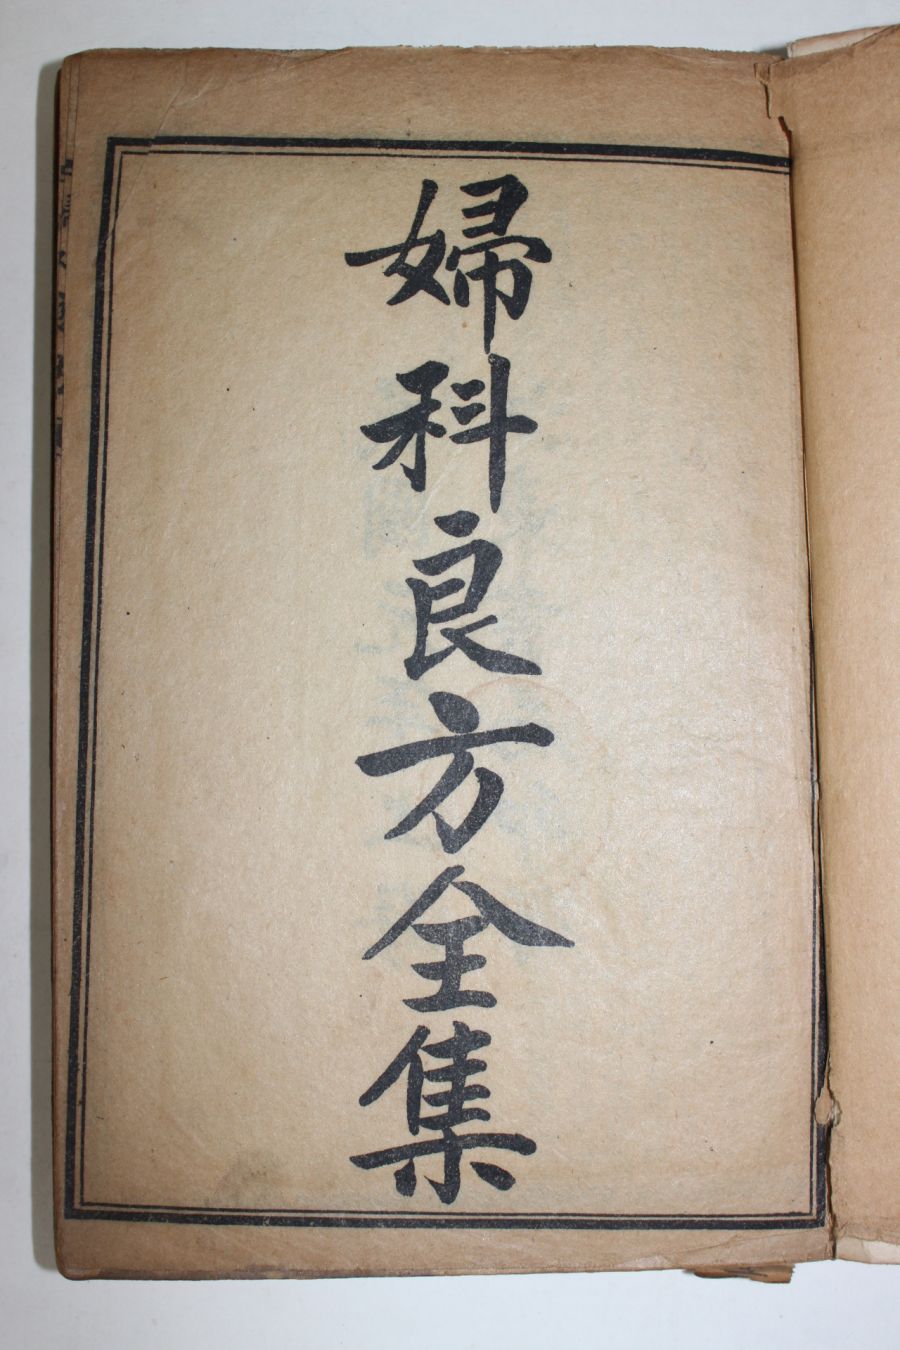 婦科良方全集